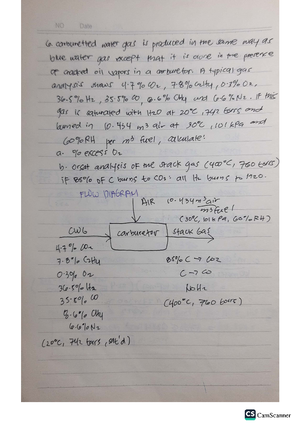 NO        Date
6. carburetted water gas is produced in the same way as
blue water gas except that it is done in the presence
of cracked oil vapors in a carburetor. A typical gas
analysis shows 4.7% CO2, 7.8% C2H4, 0.3% O2,
36.5% H2, 35.5% CO, 8.6% CH4 and 6.6% N2. If this
gas is saturated with H2O at 20°C, 742 torrs and
burned in 10.434 m³ air at 30°C, 101 kPa and
60% RH per m³ fuel, calculate:
a. % excess O2
b. orsat analysis of the stack gas (400°C, 760 torrs)
if 85% of C burns to CO2; all H2 burns to H2O.
FLOW DIAGRAM
AIR 10.434 m³ air
m³ fuel
(30°C, 101 kPa, 60% RH)
CWG carburetor stack gas
4.7% CO2 85% C → CO2
7.8% C2H4 C → CO
0.3% O2 No H2
36.5% H2 (400°C, 760 torrs)
35.5% CO
8.6% CH4
6.6% N2
(20°C, 742 torrs, sat'd)
CS CamScanner